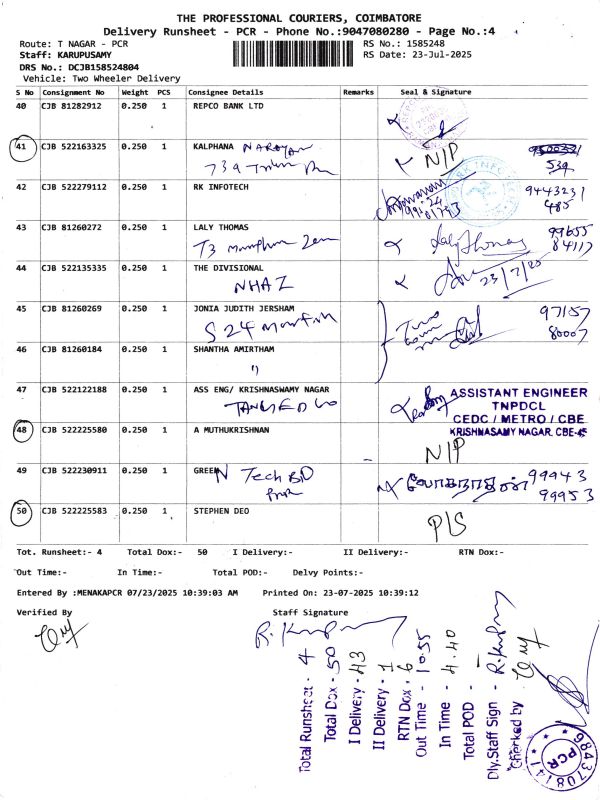 THE PROFESSIONAL COURIERS, COIMBATORE
Delivery Runsheet - PCR - Phone No.:9047080280 - Page No.:4
Route: T NAGAR - PCR RS No.: 1585248
Staff: KARUPUSAMY RS Date: 23-Jul-2025
DRS No.: DCJB158524804
Vehicle: Two Wheeler Delivery
S No Consignment No Weight PCS Consignee Details Remarks Seal & Signature
40 CJB 81282912 0.250 1 REPCO BANK LTD
41 CJB 522163325 0.250 1 KALPHANA NARAYAN N/P
539
42 CJB 522279112 0.250 1 RK INFOTECH 9443231
485
43 CJB 81260272 0.250 1 LALY THOMAS Laly Thomas 99655
84117
44 CJB 522135335 0.250 1 THE DIVISIONAL
NHAI 23/7/25
45 CJB 81260269 0.250 1 JONIA JUDITH JERSHAM 97157
S 24 80007
46 CJB 81260184 0.250 1 SHANTHA AMIRTHAM
"
47 CJB 522122188 0.250 1 ASS ENG/ KRISHNASWAMY NAGAR ASSISTANT ENGINEER
TNPDCL
TANGEDCO CEDC / METRO / CBE
48 CJB 522225580 0.250 1 A MUTHUKRISHNAN KRISHNASAMY NAGAR. CBE-45
N/P
49 CJB 522230911 0.250 1 GREEN Tech BD லோகநாதன் 99943
99953
50 CJB 522225583 0.250 1 STEPHEN DEO
P/S
Tot. Runsheet:- 4 Total Dox:- 50 I Delivery:- II Delivery:- RTN Dox:-
Out Time:- In Time:- Total POD:- Delvy Points:-
Entered By :MENAKAPCR 07/23/2025 10:39:03 AM Printed On: 23-07-2025 10:39:12
Verified By Staff Signature
Total Runsheet - 4
Total Dox - 50
I Delivery - 43
II Delivery - 1
RTN Dox - 6
Out Time - 10.55
In Time - 4.40
Total POD -
Dly.Staff Sign -
Checked by
PCR